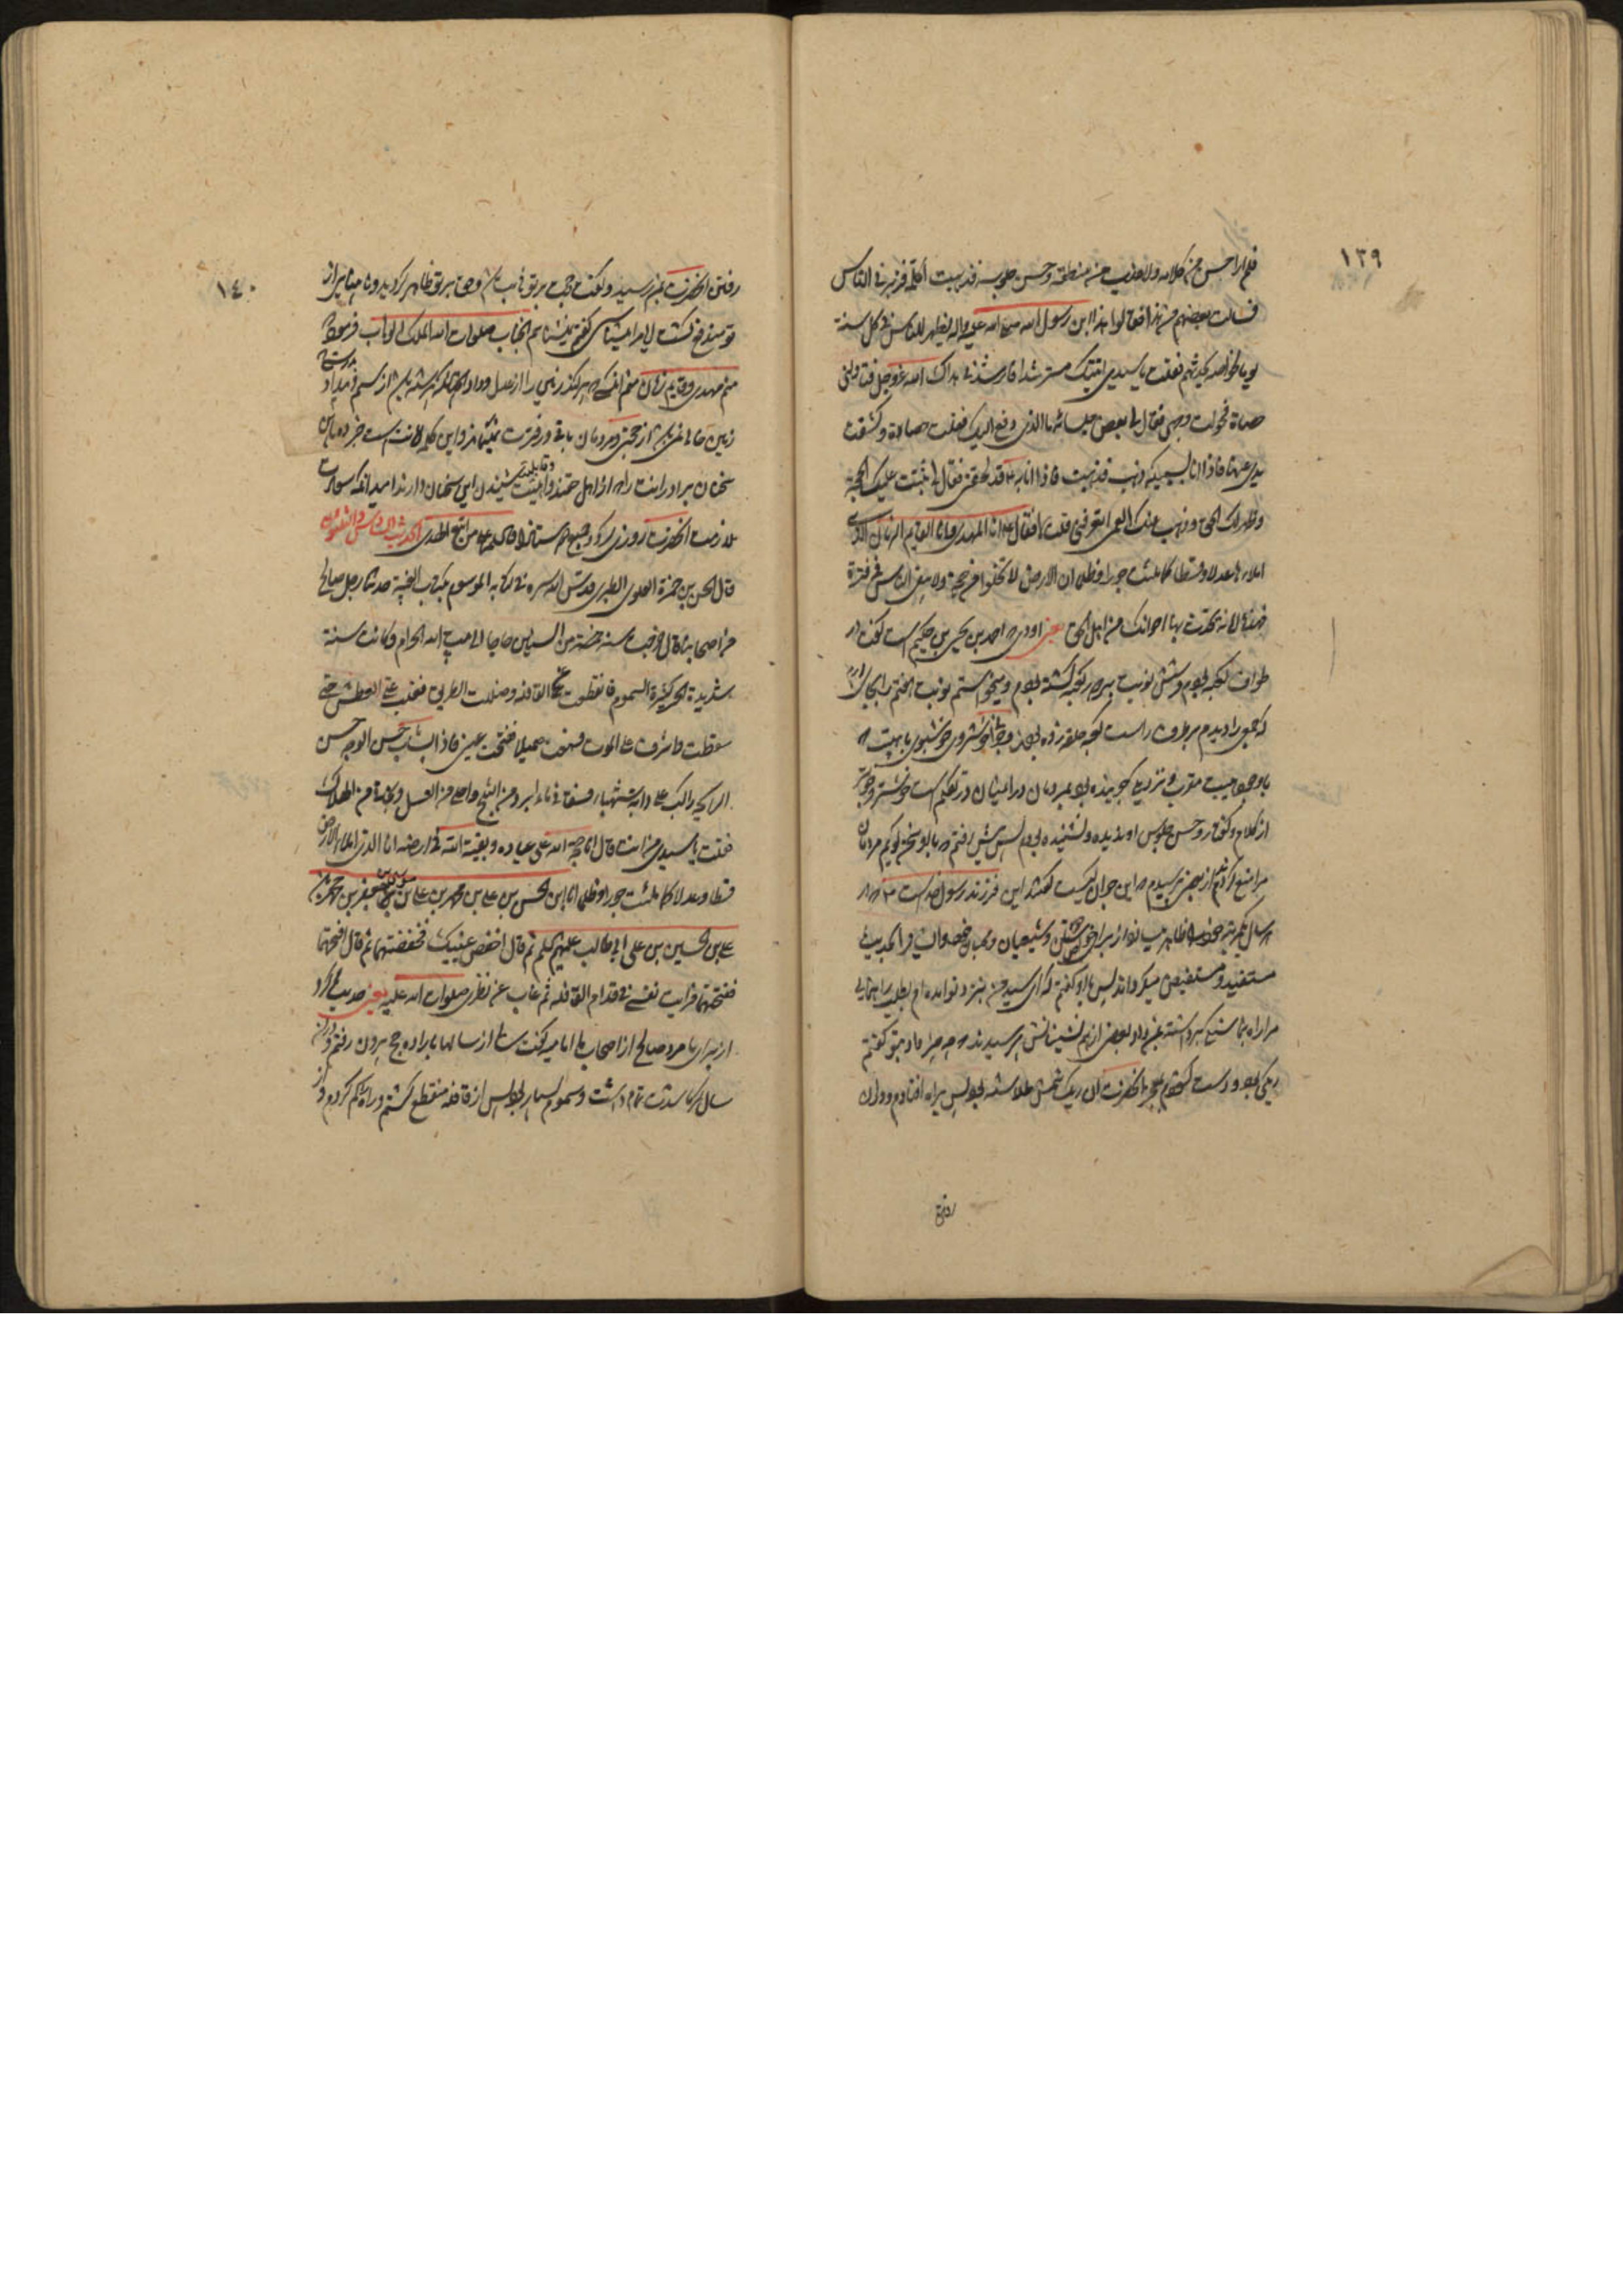 ١٣٩
فلم ار احسن من کلامه ولا اعذب من منطقه و حسن جلوسه فذهبت اکلمه فزبرنی الناس
فسألت بعضهم من هذا فقالوا هذا ابن رسول الله صلی الله علیه و اله یظهر للناس فی کل سنة
یوما لخواصه یحدثهم فقلت یا سیدی اتیتک مسترشدا فارشدنی هداک الله عز و جل فناولنی
حصاة فحولت وجهی فقال لی بعض جلسائه ما الذی دفع الیک فقلت حصاة و کشفت
یدی عنها فاذا انا بسبیکة ذهب فذهبت فاذا انا به قد لحقنی فقال لی ثبتت علیک الحجة
و ظهر لک الحق و ذهب عنک العمی اتعرفنی قلت لا فقال انا المهدی و انا القایم الزمان الذی
املاءها عدلا و قسطا کما ملئت جورا و ظلما ان الارض لا تخلوا من حجة ولا یبقی الناس فی فترة
فهذه امانة تحدث بها اخوانک من اهل الحق یعنی اودی که احمد بن یحیی بن حکیم است گفت در
طواف کعبه بودم و شش نوبت بر دور کعبه گشته بودم و میخواستم نوبت هفتم را بجای ارم
که جمعی را دیدم بر طرف راست کعبه حلقه زده بودند و جوانی خوشروی خوشبوی با هیبت که
با وجود هیبت متقرب و نزدیک جوینده بود بمردمان در ان میان در تکلم است خوشتر و خوبتر
از کلام و گفتار و حسن جلوس او ندیده و نشنیده بودم پس پیش رفتم که با او سخن گویم مردمان
مرا منع کردند از بعضی پرسیدم که این جوان کیست گفتند این فرزند رسول خداست که در
هر سال یکمرتبه خود را ظاهر میسازد از برای خواص و شیعیان و محبان مخصوصان و احدیث
مستفید و مستفیض میگرداند پس با او گفتم که ای سید من بنزد تو امده ام بطلب راهنمائی
مرا راه بنما سنگی برداشته بمن داد بعضی از همنشینانش پرسیدند که چه چیز داد بتو گفتم
ریگی بود و دست گشودم بمعجزه انحضرت ان ریک شمش طلا شده بود پس براه افتادم و دران
رفتن
١٤٠
رفتن انحضرت بمن رسید و گفت حجت بر تو ثابت شد و حق بر تو ظاهر گردید و نابینایی از
تو مندفع گشت ایا مرا میشناسی گفتم نمیشناسم انجناب صلوات الله الملک الوهاب فرمود که
منم مهدی و قایم زمان منم انکسی که پر میکند زمین را از عدل و داد همچنانکه پر شده باشد از ستم و بیداد بدرستی که
زمین خالی نمی باشد از حجتی و مردمان باقی در فترت نمیمانند و این کلام امانتست خبر ده باین
سخنان برادرانت را که از اهل حقند و قابلیت و اهلیت شنیدن این سخنان دارند امید انکه سعادت
ملازمت انحضرت روزی ما و جمیع دوستان گردد والسلام علی من اتبع الهدی الحدیث السادس و الثلثون
قال الحسن بن حمزة العلوی الطبری قدس الله سره فی کتابه الموسوم بکتاب الغیبة حدثنا رجل صالح
من اصحابنا قال خرجت سنة خمسة من السنین حاجا الی بیت الله الحرام و کانت سنة
شدیدة الحر کثیرة السموم فانقطعت عن القافلة و ضللت الطریق فغلب علی العطش حتی
سقطت و اشرفت علی الموت فسمعت صهیلا ففتحت عینی فاذا بشاب حسن الوجه حسن
الرایحة راکب علی دابة شهباء فسقانی ماء ابرد من الثلج و احلی من العسل و نجانی من الهلاک
فقلت یا سیدی من انت قال انا حجة الله علی عباده و بقیة الله فی ارضه انا الذی املأ الارض
قسطا و عدلا کما ملئت جورا و ظلما انا ابن الحسن بن علی بن محمد بن علی بن موسی بن جعفر بن محمد بن
علی بن الحسین بن علی ابی طالب علیهم السلم ثم قال اخفض عینیک فخفضتهما ثم قال افتحهما
ففتحتهما فرایت نفسی فی قدام القافله ثم غاب عن نظری صلوات الله علیه یعنی حدیث کرد
از برای ما مرد صالحی از اصحاب ما امامیه گفت سالی از سالها باراده حج بیرون رفتم و دران
سال گرما شدت تمام داشت و سموم بسیار بود پس از قافله منقطع گشتم و راه گم کردم و از